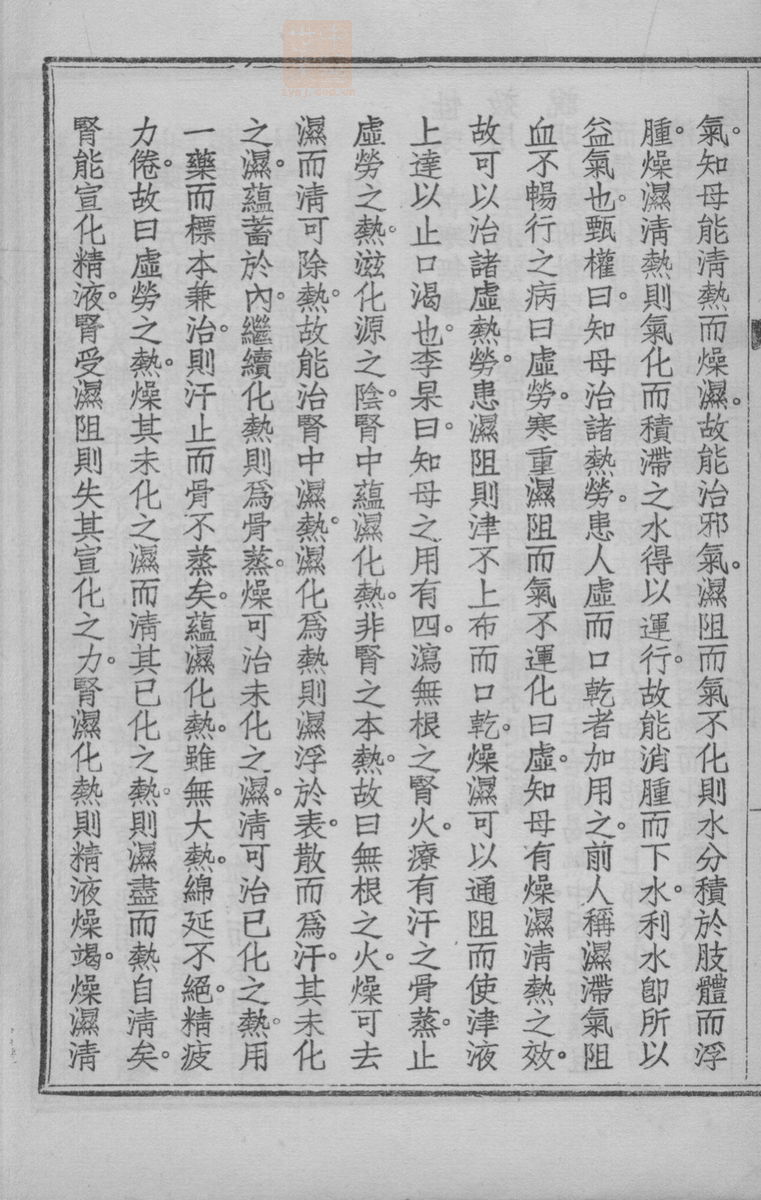 氣。知母能清熱而燥濕。故能治邪氣。濕阻而氣不化則水分積於肢體而浮
腫。燥濕清熱則氣化而積滯之水得以運行。故能消腫而下水。利水卽所以
益氣也。甄權曰。知母治諸熱勞。患人虛而口乾者加用之。前人稱濕滯氣阻
血不暢行之病曰虛勞。寒重濕阻而氣不運化曰虛。知母有燥濕清熱之效。
故可以治諸虛熱勞。患濕阻則津不上布而口乾。燥濕可以通阻而使津液
上達以止口渴也。李杲曰。知母之用有四。瀉無根之腎火。療有汗之骨蒸。止
虛勞之熱。滋化源之陰。腎中蘊濕化熱。非腎之本熱。故曰無根之火。燥可去
濕而清可除熱。故能治腎中濕熱。濕化爲熱則濕浮於表。散而爲汗。其未化
之濕。蘊蓄於內。繼續化熱則爲骨蒸。燥可治未化之濕。清可治已化之熱。用
一藥而標本兼治。則汗止而骨不蒸矣。蘊濕化熱。雖無大熱。綿延不絕。精疲
力倦。故曰虛勞之熱。燥其未化之濕而清其已化之熱。則濕盡而熱自清矣。
腎能宣化精液。腎受濕阻則失其宣化之力。腎濕化熱則精液燥竭。燥濕清